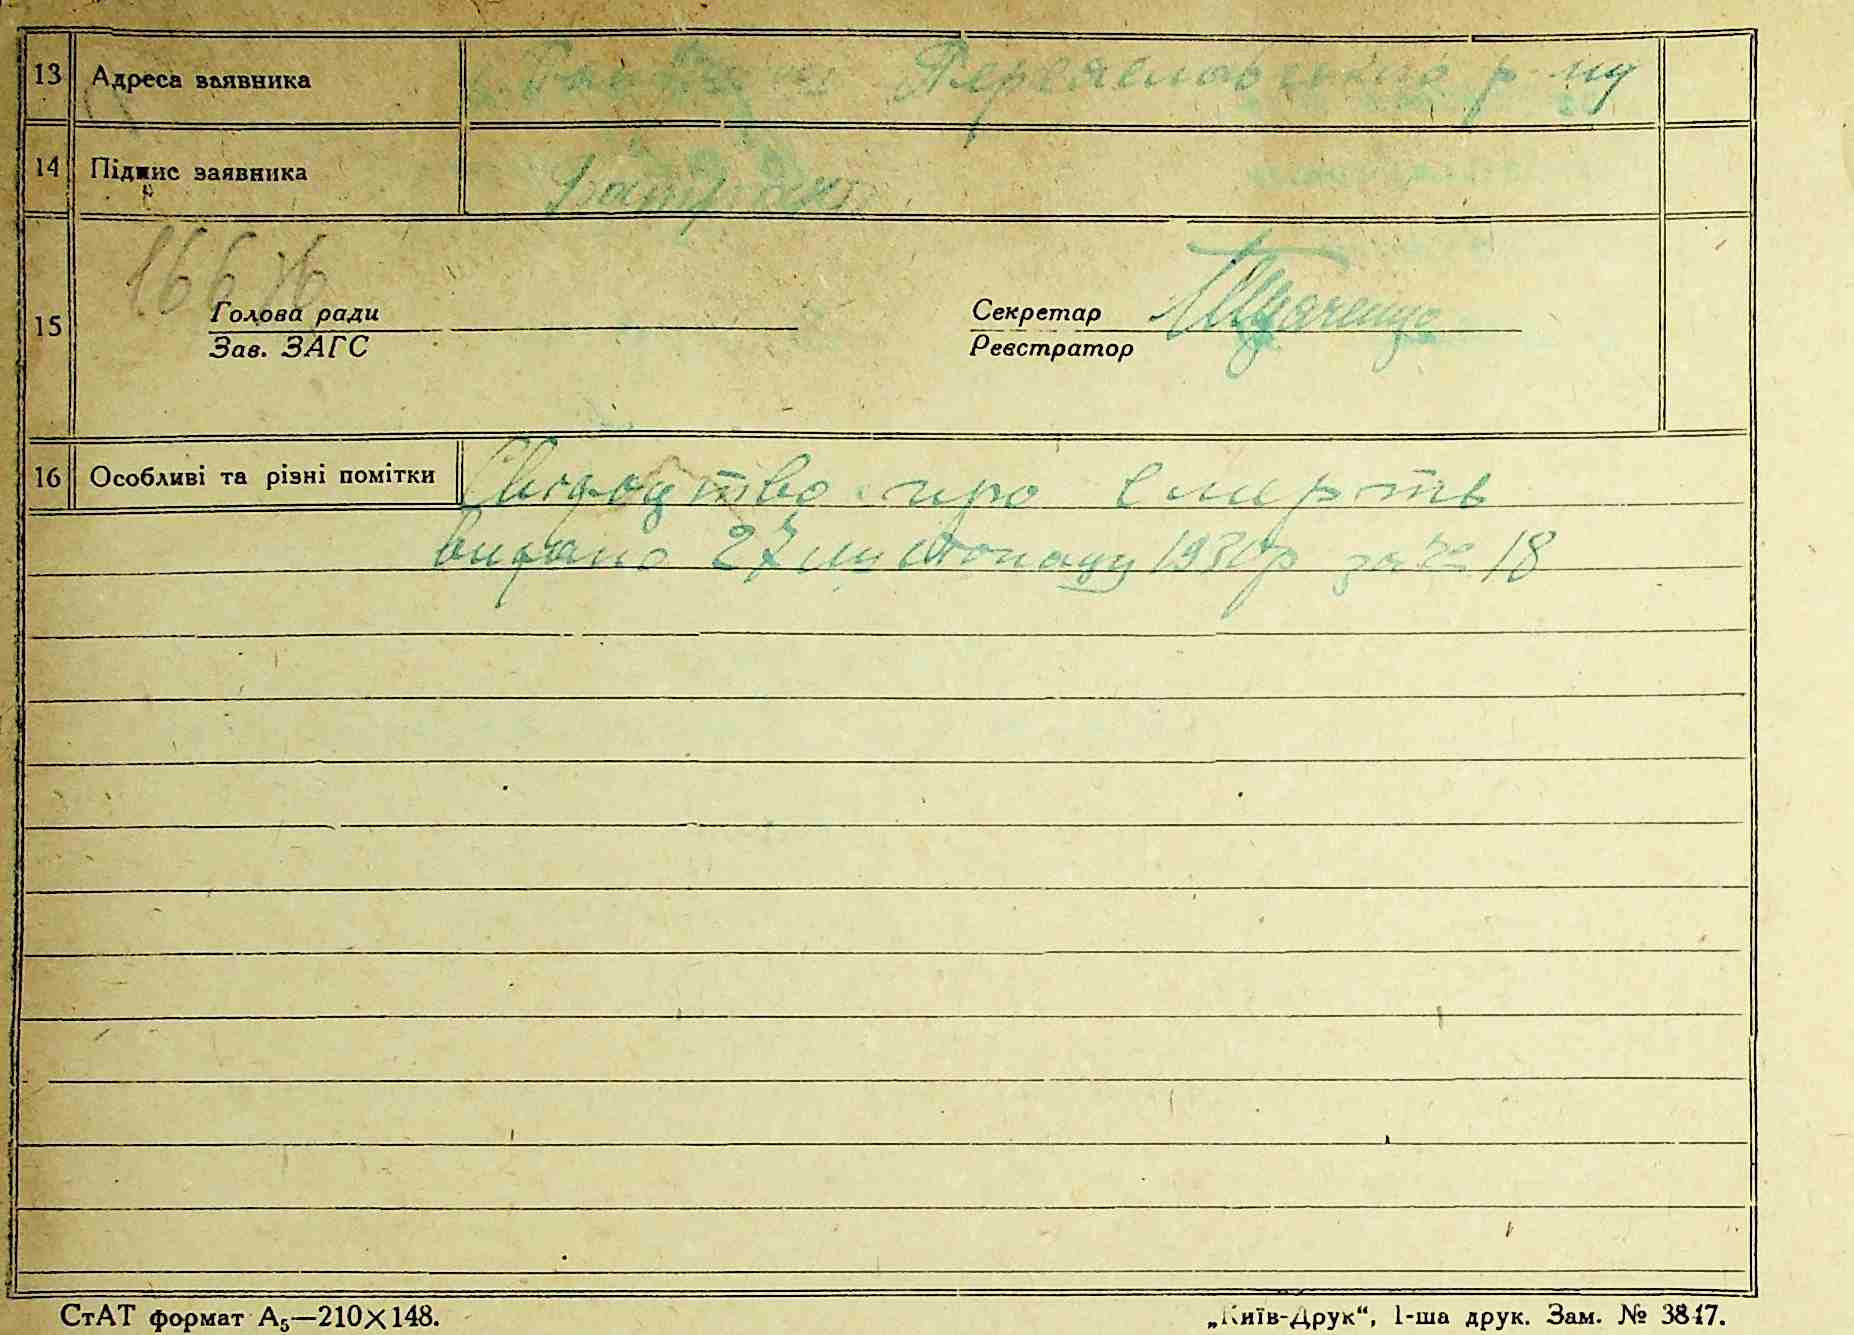 13 Адреса заявника Переяславського р-ну
14 Підпис заявника
16676
15 Голова ради Секретар Ткаченко
Зав. ЗАГС Реєстратор
16 Особливі та різні помітки Свідоцтво про смерть
видано 27 листопаду 1930р за № 18
СтАТ формат А₅—210×148. „Київ-Друк“, 1-ша друк. Зам. № 3847.